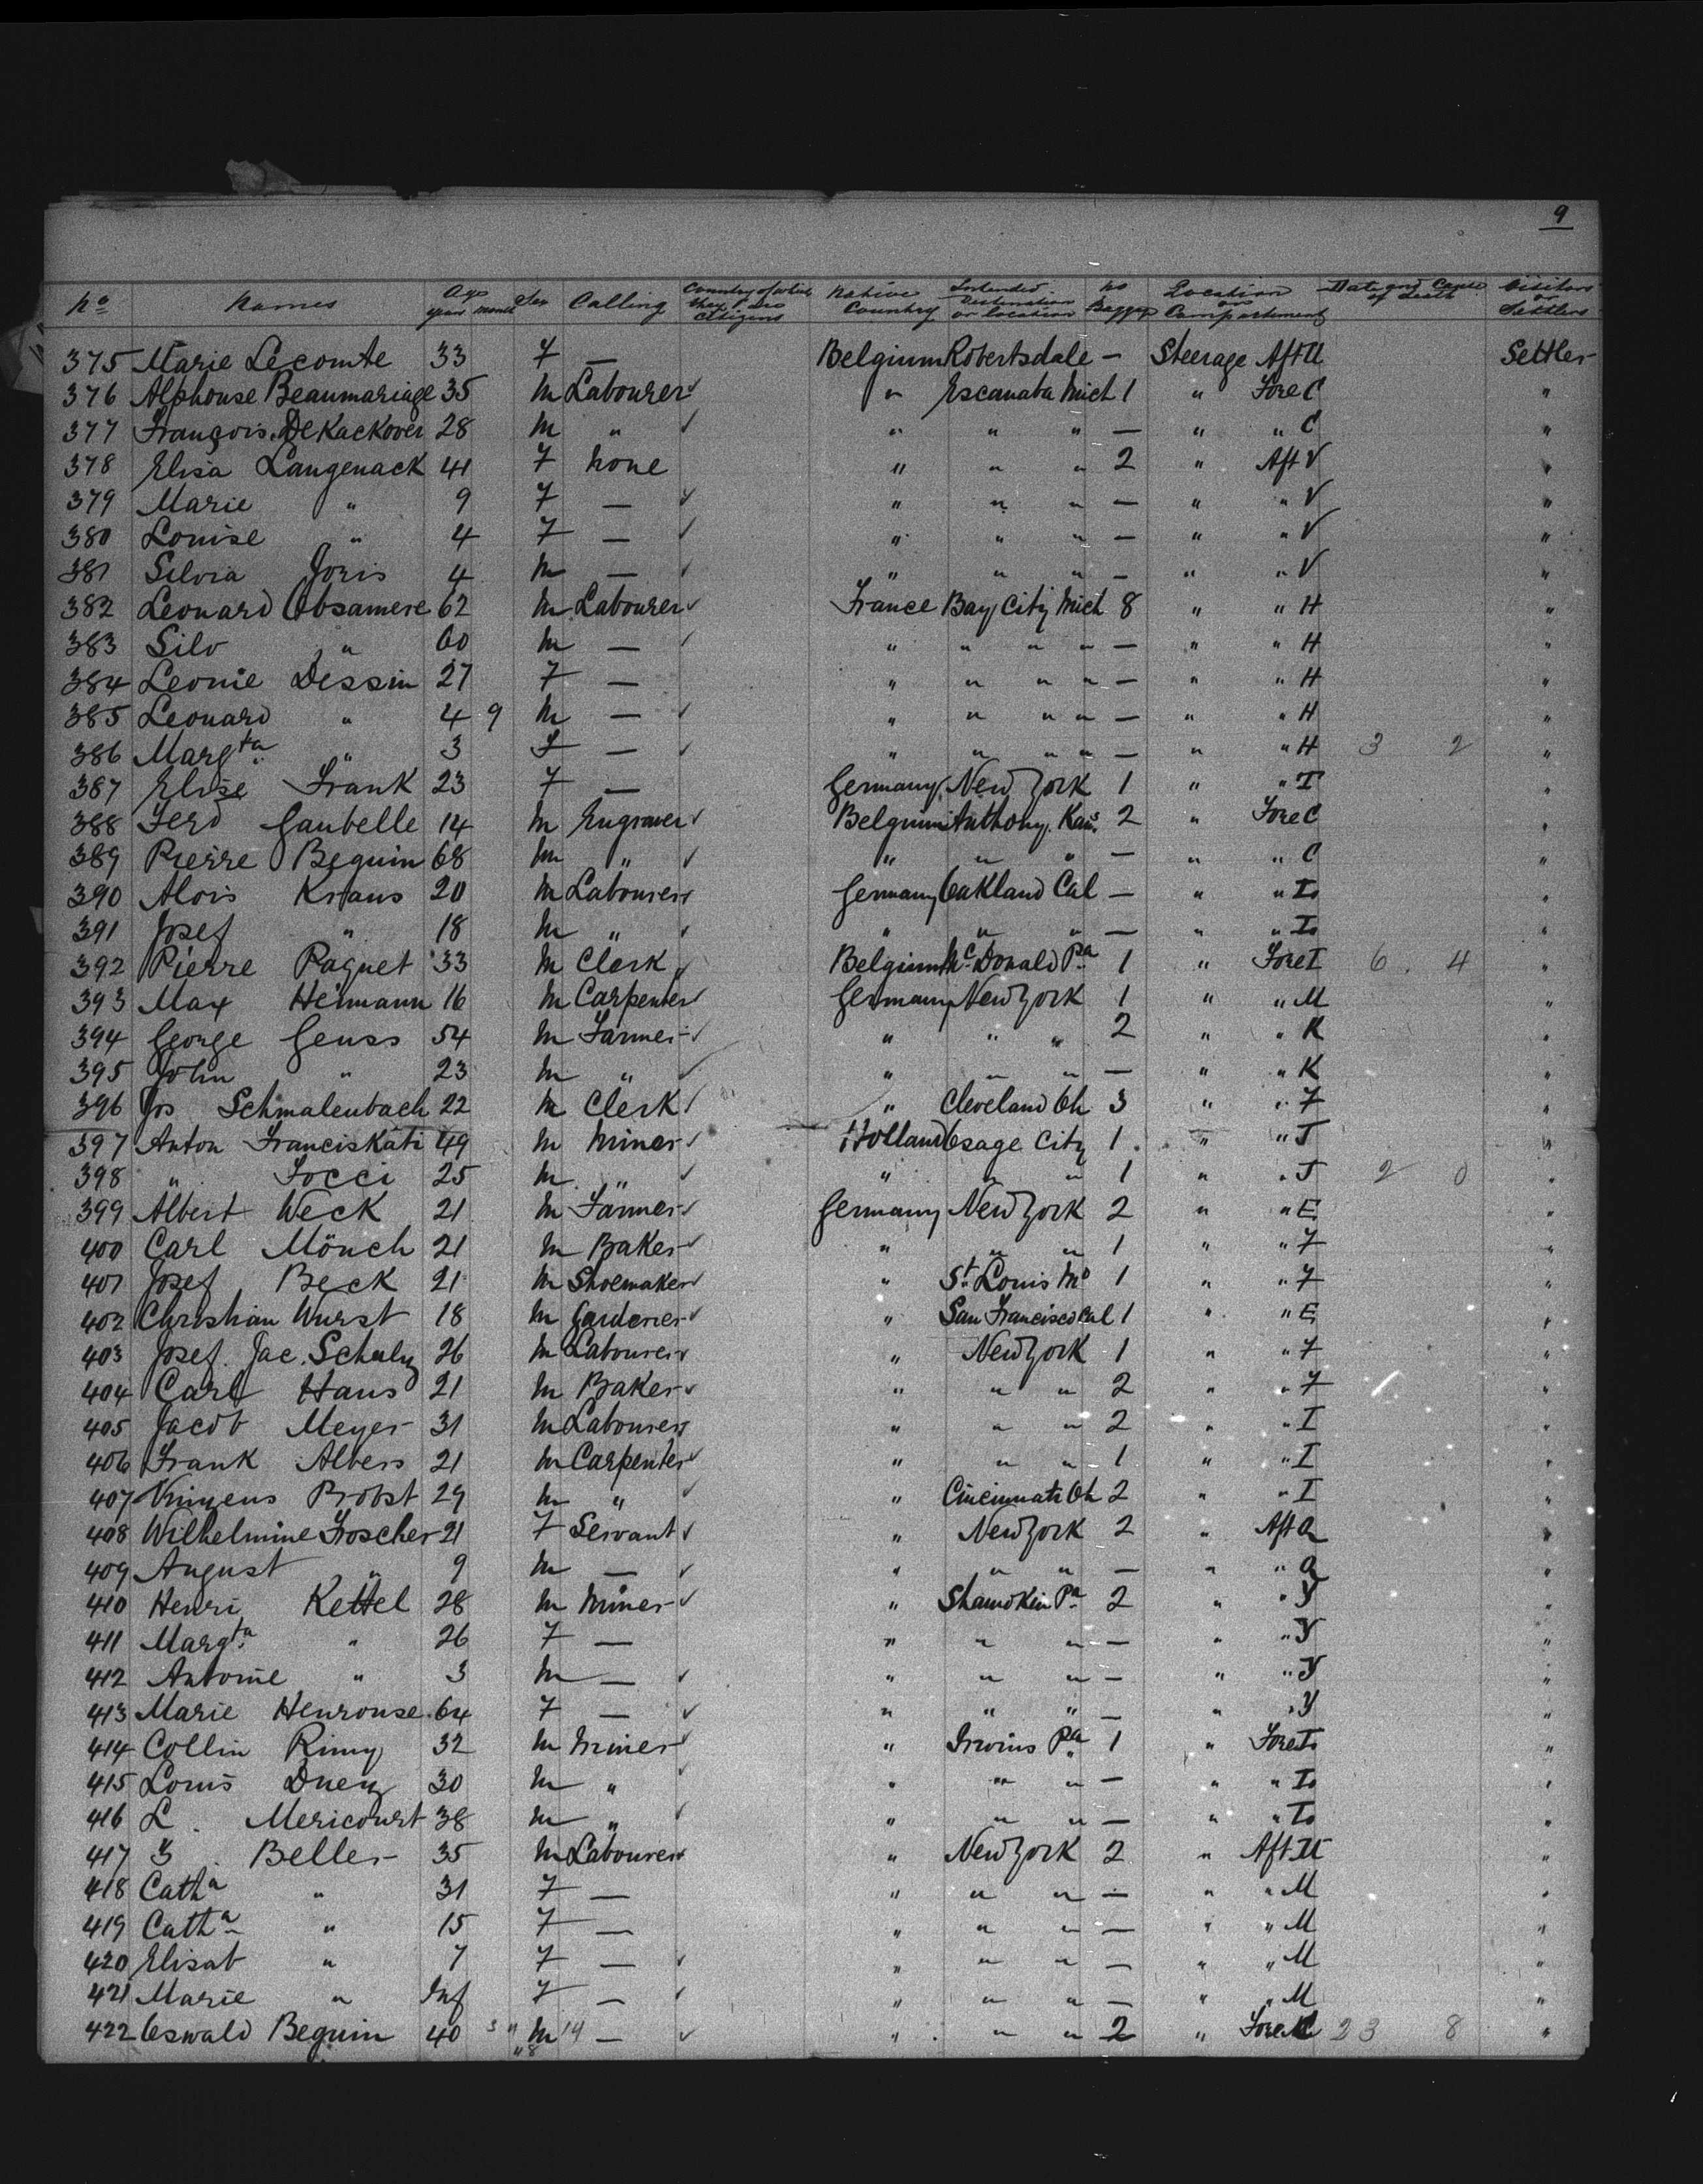 9
No Names Age year month Sex Calling Country of which they are Citizens Native Country Intended Destination or location No Baggage Location or Compartment Date and Cause of death Visitors or Settlers
375 Marie Lecomte 33 F — Belgium Robertsdale — Steerage Aft U Settler
376 Alphouse Beaumariage 35 M Labourer ✓ " Escanaba Mich 1 " Fore C "
377 François DeKacKover 28 M " ✓ " " " — " " C "
378 Elisa Langenack 41 F None " " " 2 " Aft V "
379 Marie " 9 F — ✓ " " " — " " V "
380 Louise " 4 F — ✓ " " " — " " V "
381 Silvia Joris 4 M — ✓ " " " — " " V "
382 Leonard Obsamere 62 M Labourer ✓ France Bay City Mich 8 " " H "
383 Silv " 60 M — ✓ " " " " — " " H "
384 Leonie Dessin 27 F — " " " " — " " H "
385 Leonard " 4 9 M — ✓ " " " " — " " H "
386 Margta " 3 F — ✓ " " " " — " " H 3 2 "
387 Elise Frank 23 F — Germany New York 1 " " I "
388 Ferd Gaubelle 14 M Engraver ✓ Belgium Anthony Kans 2 " Fore C "
389 Pierre Beguin 68 M " ✓ " " " — " " C "
390 Alois Kraus 20 M Labourer ✓ Germany Oakland Cal — " " Io "
391 Josef " 18 M " ✓ " " " — " " Io "
392 Pierre Paquet 33 M Clerk ✓ Belgium McDonald Pa 1 " Fore I 6 4 "
393 Max Heimann 16 M Carpenter ✓ Germany New York 1 " " M "
394 George Genss 54 M Farmer ✓ " " " 2 " " K "
395 John " 23 M " ✓ " " " — " " K "
396 Jos Schmalenbach 22 M Clerk ✓ " Cleveland Oh 3 " " F "
397 Anton Franciskati 49 M Miner ✓ Holland Osage City 1 " " J "
398 " Focci 25 M " ✓ " " " 1 " " J 2 0 "
399 Albert Weck 21 M Farmer ✓ Germany New York 2 " " E "
400 Carl Mönch 21 M Baker ✓ " " " 1 " " F "
401 Josef Beck 21 M Shoemaker ✓ " St Louis Mo 1 " " F "
402 Christian Wurst 18 M Gardener ✓ " San Francisco Cal 1 " " E "
403 Josef Jac. Schulz 26 M Labourer ✓ " New York 1 " " F "
404 Carl Haus 21 M Baker ✓ " " " 2 " " F "
405 Jacob Meyer 31 M Labourer ✓ " " " 2 " " I "
406 Frank Albers 21 M Carpenter ✓ " " " 1 " " I "
407 Probst 29 M " ✓ " Cincinnati Oh 2 " " I "
408 Wilhelmine Froscher 21 F Servant ✓ " New York 2 " Aft Q "
409 August " 9 M — ✓ " " " — " " Q "
410 Henri Kettel 28 M Miner ✓ " Shamokin Pa 2 " " Y "
411 Margta " 26 F — " " " — " " Y "
412 Antoine " 3 M — ✓ " " " — " " Y "
413 Marie Henrouse 64 F — ✓ " " " — " " Y "
414 Collin Rimy 32 M Miner ✓ " Irwins Pa 1 " Fore Io "
415 Louis Duez 30 M " ✓ " " " — " " Io "
416 L. Mericourt 38 M " ✓ " " " — " " Io "
417 Beller 35 M Labourer ✓ " New York 2 " Aft M "
418 Catha " 31 F — " " " — " " M "
419 Catha " 15 F — " " " — " " M "
420 Elisab " 7 F — ✓ " " " — " " M "
421 Marie " Inf F — ✓ " " " — " " M "
422 Oswald Beguin 40 3 " M 14 — ✓ " " " 2 " Fore 23 8 "
" 8